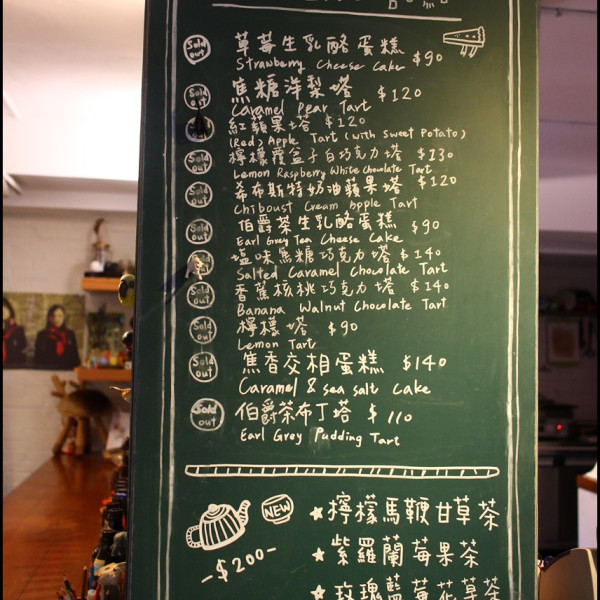 Sold out 草莓生乳酪蛋糕 $90
Strawberry Cheese Cake
Sold out 焦糖洋梨塔 $120
Caramel Pear Tart
Sold out 紅蘋果塔 $120
(Red) Apple Tart (with Sweet Potato)
Sold out 檸檬覆盆子白巧克力塔 $130
Lemon Raspberry White Chocolate Tart
Sold out 希布斯特奶油蘋果塔 $120
Chiboust Cream Apple Tart
Sold out 伯爵茶生乳酪蛋糕 $90
Earl Grey Tea Cheese Cake
Sold out 塩味焦糖巧克力塔 $140
Salted Caramel Chocolate Tart
Sold out 香蕉核桃巧克力塔 $140
Banana Walnut Chocolate Tart
Sold out 檸檬塔 $90
Lemon Tart
Sold out 焦香交相蛋糕 $140
Caramel & sea salt cake
Sold out 伯爵茶布丁塔 $110
Earl Grey Pudding Tart
NEW ★檸檬馬鞭甘草茶
★紫羅蘭莓果茶
-$200-
★玫瑰藍莓花草茶